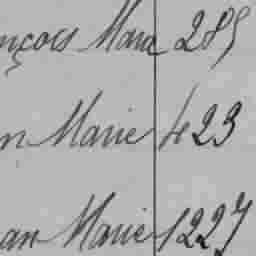 nçois Marie 285
n Marie 423
an Marie 1227